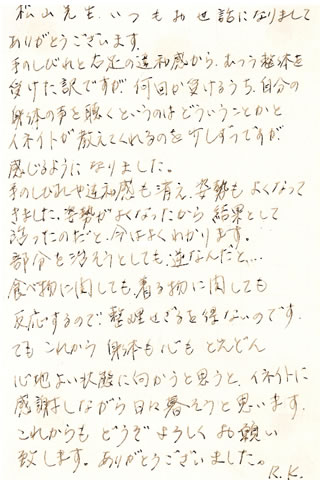 松山先生、いつもお世話になりまして
ありがとうございます。
手のしびれと右足の違和感から、むつう整体を
受けた訳ですが、何回か受けるうち、自分の
身体の声を聴くというのはどういうことかと
イネイトが教えてくれるのを少しずつですが
感じるようになりました。
手のしびれや違和感も消え、姿勢もよくなって
きました。姿勢がよくなったから 結果として
治ったのだと、今はよくわかります。
部分を治そうとしても、逆なんだと…
食べ物に関しても、着る物に関しても
反応するので、整理せざるを得ないのです。
でも これから 身体も心も どんどん
心地よい状態に向かうと思うと、イネイトに
感謝しながら日々暮そうと思います。
これからも どうぞ よろしく お願い
致します。ありがとうございました。
R.K.